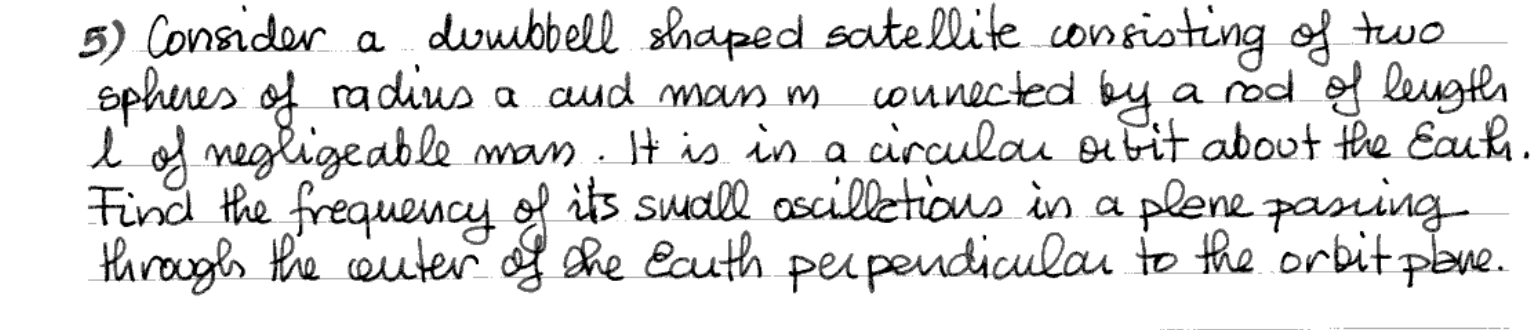 5) Consider a dumbbell shaped satellite consisting of two
spheres of radius a and mass m connected by a rod of length
l of negligeable mass. It is in a circular orbit about the Earth.
Find the frequency of its small oscillations in a plane passing
through the center of the Earth perpendicular to the orbit plane.